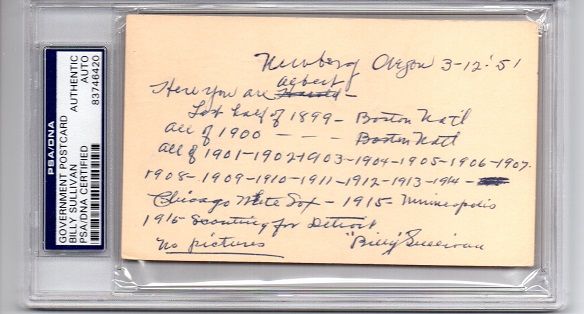 PSA/DNA
GOVERNMENT POSTCARD
BILLY SULLIVAN
PSA/DNA CERTIFIED
AUTHENTIC
AUTO
83746420
Newberg Oregon 3-12-'51
Albert
Here you are Harold -
Last half of 1899 - Boston Nat'l
All of 1900 - - - Boston Nat'l
All of 1901-1902-1903-1904-1905-1906-1907-
1908-1909-1910-1911-1912-1913-1914 -
Chicago White Sox - 1915 - Minneapolis
1915 Scouting for Detroit
No pictures "Billy" Sullivan